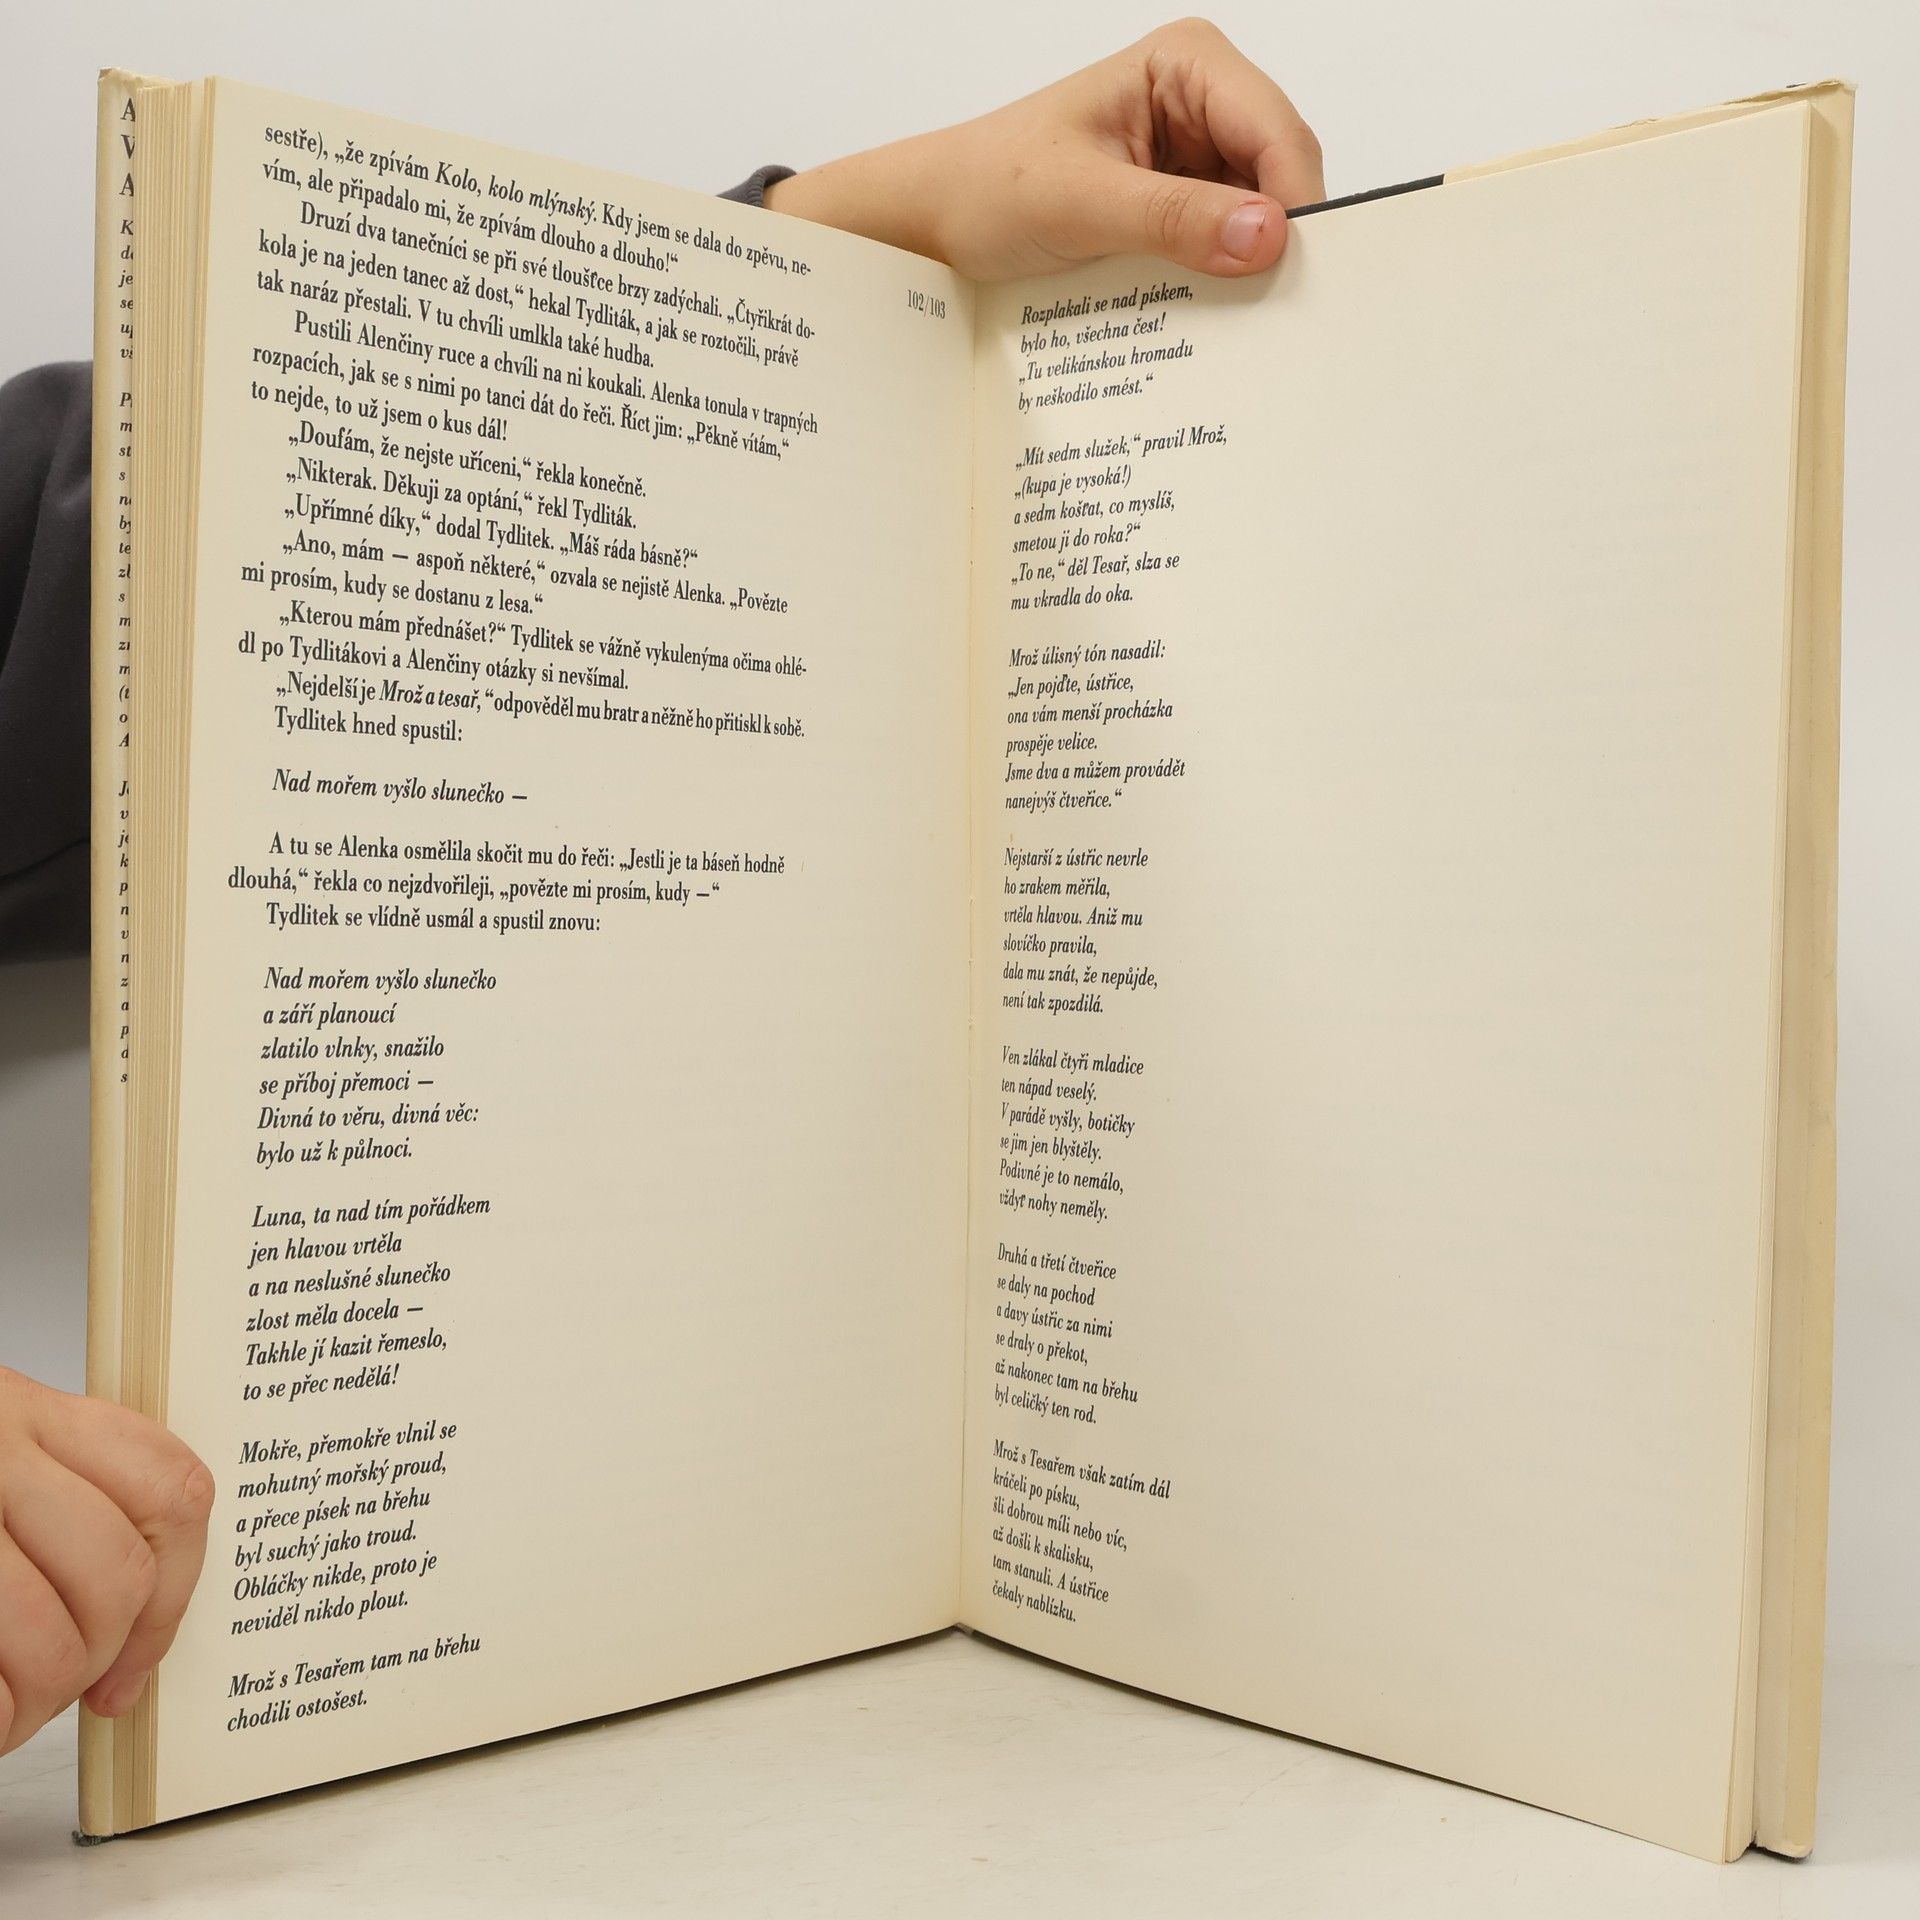 sestře), „že zpívám Kolo, kolo mlýnský. Kdy jsem se dala do zpěvu, ne-
vím, ale připadalo mi, že zpívám dlouho a dlouho!“
Druzí dva tanečníci se při své tloušťce brzy zadýchali. „Čtyřikrát do-
kola je na jeden tanec až dost,“ hekal Tydliták, a jak se roztočili, právě
tak naráz přestali. V tu chvíli umlkla také hudba.
Pustili Alenčiny ruce a chvíli na ni koukali. Alenka tonula v trapných
rozpacích, jak se s nimi po tanci dát do řeči. Říct jim: „Pěkně vítám,“
to nejde, to už jsem o kus dál!
„Doufám, že nejste uříceni,“ řekla konečně.
„Nikterak. Děkuji za optání,“ řekl Tydliták.
„Upřímné díky,“ dodal Tydlitek. „Máš ráda básně?“
„Ano, mám — aspoň některé,“ ozvala se nejistě Alenka. „Povězte
mi prosím, kudy se dostanu z lesa.“
„Kterou mám přednášet?“ Tydlitek se vážně vykulenýma očima ohlé-
dl po Tydlitákovi a Alenčiny otázky si nevšímal.
„Nejdelší je Mrož a tesař,“ odpověděl mu bratr a něžně ho přitiskl k sobě.
Tydlitek hned spustil:
Nad mořem vyšlo slunečko —
A tu se Alenka osmělila skočit mu do řeči: „Jestli je ta báseň hodně
dlouhá,“ řekla co nejzdvořileji, „povězte mi prosím, kudy —“
Tydlitek se vlídně usmál a spustil znovu:
Nad mořem vyšlo slunečko
a září planoucí
zlatilo vlnky, snažilo
se příboj přemoci —
Divná to věru, divná věc:
bylo už k půlnoci.
Luna, ta nad tím pořádkem
jen hlavou vrtěla
a na neslušné slunečko
zlost měla docela —
Takhle jí kazit řemeslo,
to se přec nedělá!
Mokře, přemokře vlnil se
mohutný mořský proud,
a přece písek na břehu
byl suchý jako troud.
Obláčky nikde, proto je
neviděl nikdo plout.
Mrož s Tesařem tam na břehu
chodili ostošest.
102/103
Rozplakali se nad pískem,
bylo ho, všechna čest!
„Tu velikánskou hromadu
by neškodilo smést.“
„Mít sedm služek,“ pravil Mrož,
„(kupa je vysoká!)
a sedm košťat, co myslíš,
smetou ji do roka?“
„To ne,“ děl Tesař, slza se
mu vkradla do oka.
Mrož úlisný tón nasadil:
„Jen pojďte, ústřice,
ona vám menší procházka
prospěje velice.
Jsme dva a můžem provádět
nanejvýš čtveřice.“
Nejstarší z ústřic nevrle
ho zrakem měřila,
vrtěla hlavou. Aniž mu
slovíčko pravila,
dala mu znát, že nepůjde,
není tak zpozdilá.
Ven zlákal čtyři mladice
ten nápad veselý.
V parádě vyšly, botičky
se jim jen blyštěly.
Podivné je to nemálo,
vždyť nohy neměly.
Druhá a třetí čtveřice
se daly na pochod
a davy ústřic za nimi
se draly o překot,
až nakonec tam na břehu
byl celičký ten rod.
Mrož s Tesařem však zatím dál
kráčeli po písku,
šli dobrou míli nebo víc,
až došli k skalisku,
tam stanuli. A ústřice
čekaly nablízku.